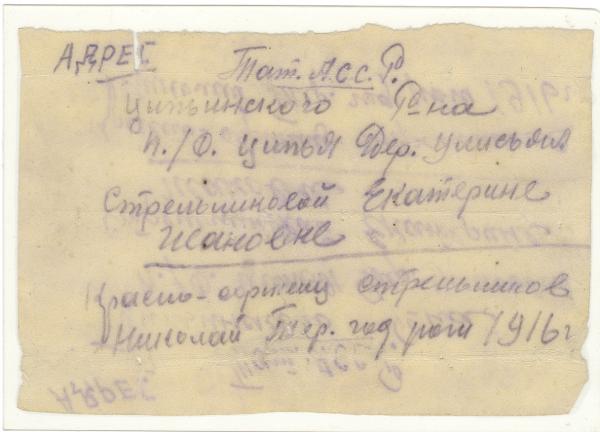 АДРЕС
Тат. АССР.
Ципьинского Р-на
п./О. Ципья Дер. Улисьял
Стрельниковой Екатерине
Ивановне
Красно-армеец Стрельников
Николай год рож 1916 г